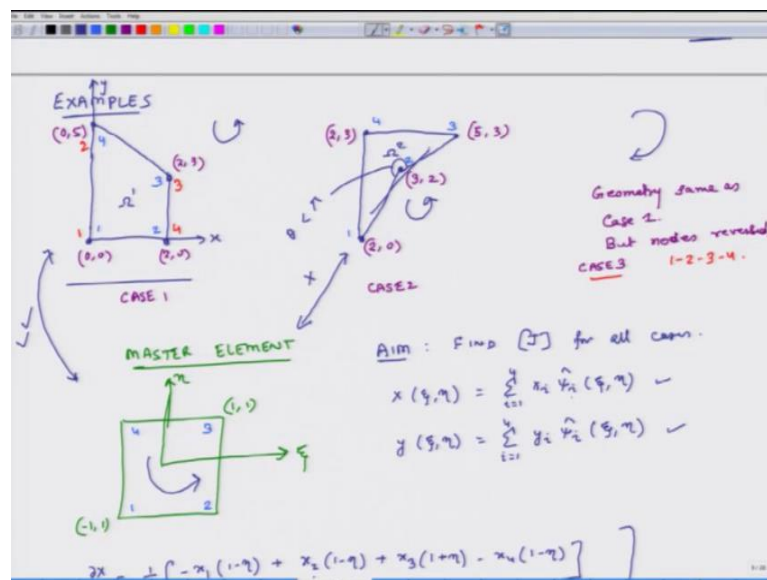 File Edit View Insert Actions Tools Help
EXAMPLES
y
(0,5)
2
4
(2,3)
3
3
Ω¹
1
1
2
4
x
(0,0)
(2,0)
CASE 1
(2,3)
4
3
(5,3)
Ω²
2
(3,2)
θ < π
1
(2,0)
x
CASE 2
Geometry same as
Case 1.
But nodes reversed
CASE 3 1-2-3-4.
MASTER ELEMENT
η
(1,1)
4
3
ξ
1
2
(-1,1)
AIM : FIND [J] for all cases.
x (ξ,η) = Σ_{i=1}^{4} x_i ψ̂_i (ξ,η)
y (ξ,η) = Σ_{i=1}^{4} y_i ψ̂_i (ξ,η)
∂x = 1/[-x₁(1-η) + x₂(1-η) + x₃(1+η) - x₄(1-η)]